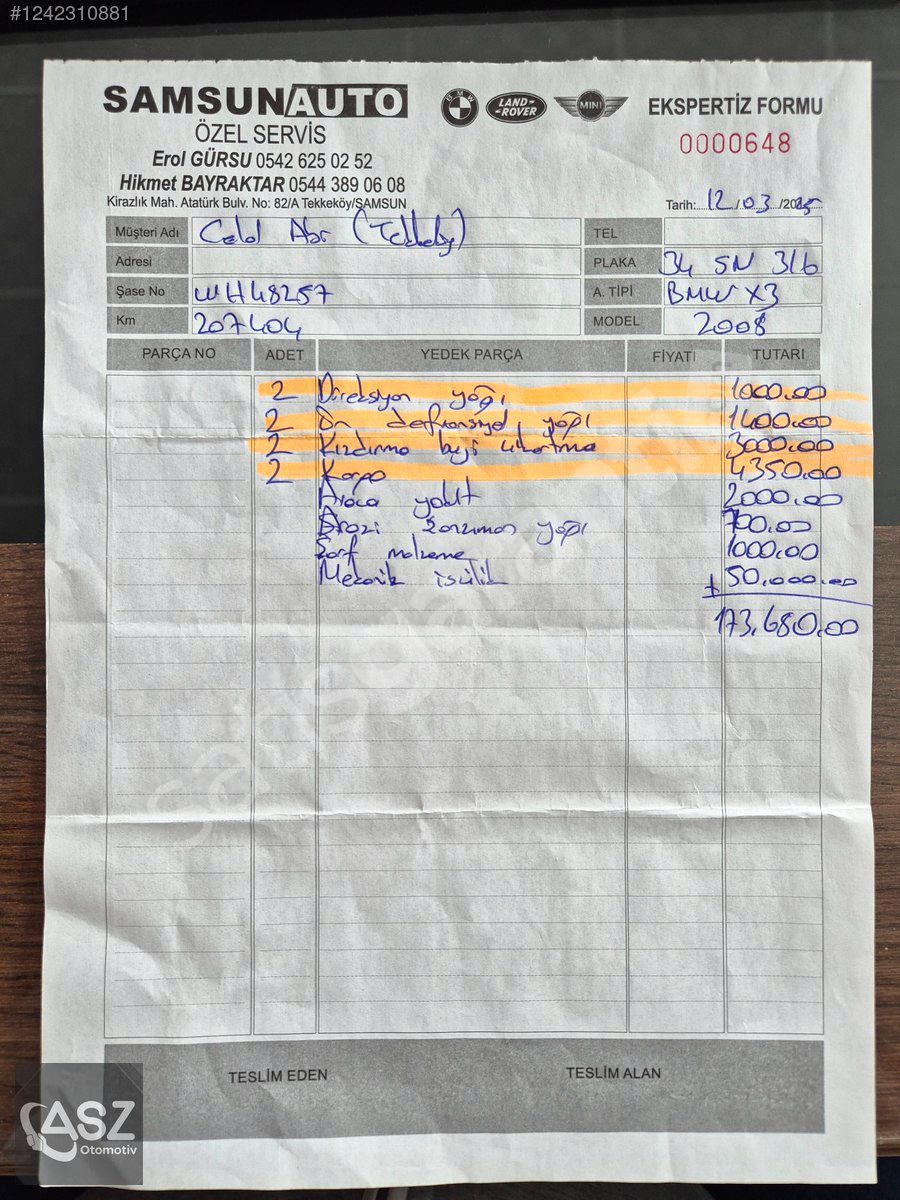 #1242310881
SAMSUNAUTO
ÖZEL SERVİS
Erol GÜRSU 0542 625 02 52
Hikmet BAYRAKTAR 0544 389 06 08
Kirazlık Mah. Atatürk Bulv. No: 82/A Tekkeköy/SAMSUN
BMW
LAND-ROVER
MINI
EKSPERTİZ FORMU
0000648
Tarih: 12/03/2025
Müşteri Adı Celal Abi (Tekkeköy) TEL
Adresi PLAKA 34 SN 316
Şase No WH48257 A. TİPİ BMW X3
Km 207404 MODEL 2008
PARÇA NO ADET YEDEK PARÇA FİYATI TUTARI
2 Direksiyon yağı 1000.00
2 Ön defransiyel yağı 1400.00
2 Kızdırma beyi 3000.00
2 4350.00
Araca yakıt 2000.00
Arazi şanzıman yağı 700.00
Sarf malzeme 1000.00
Mekanik işçilik + 50.000.00
173.680.00
satsaankir
TESLİM EDEN TESLİM ALAN
ASZ
Otomotiv